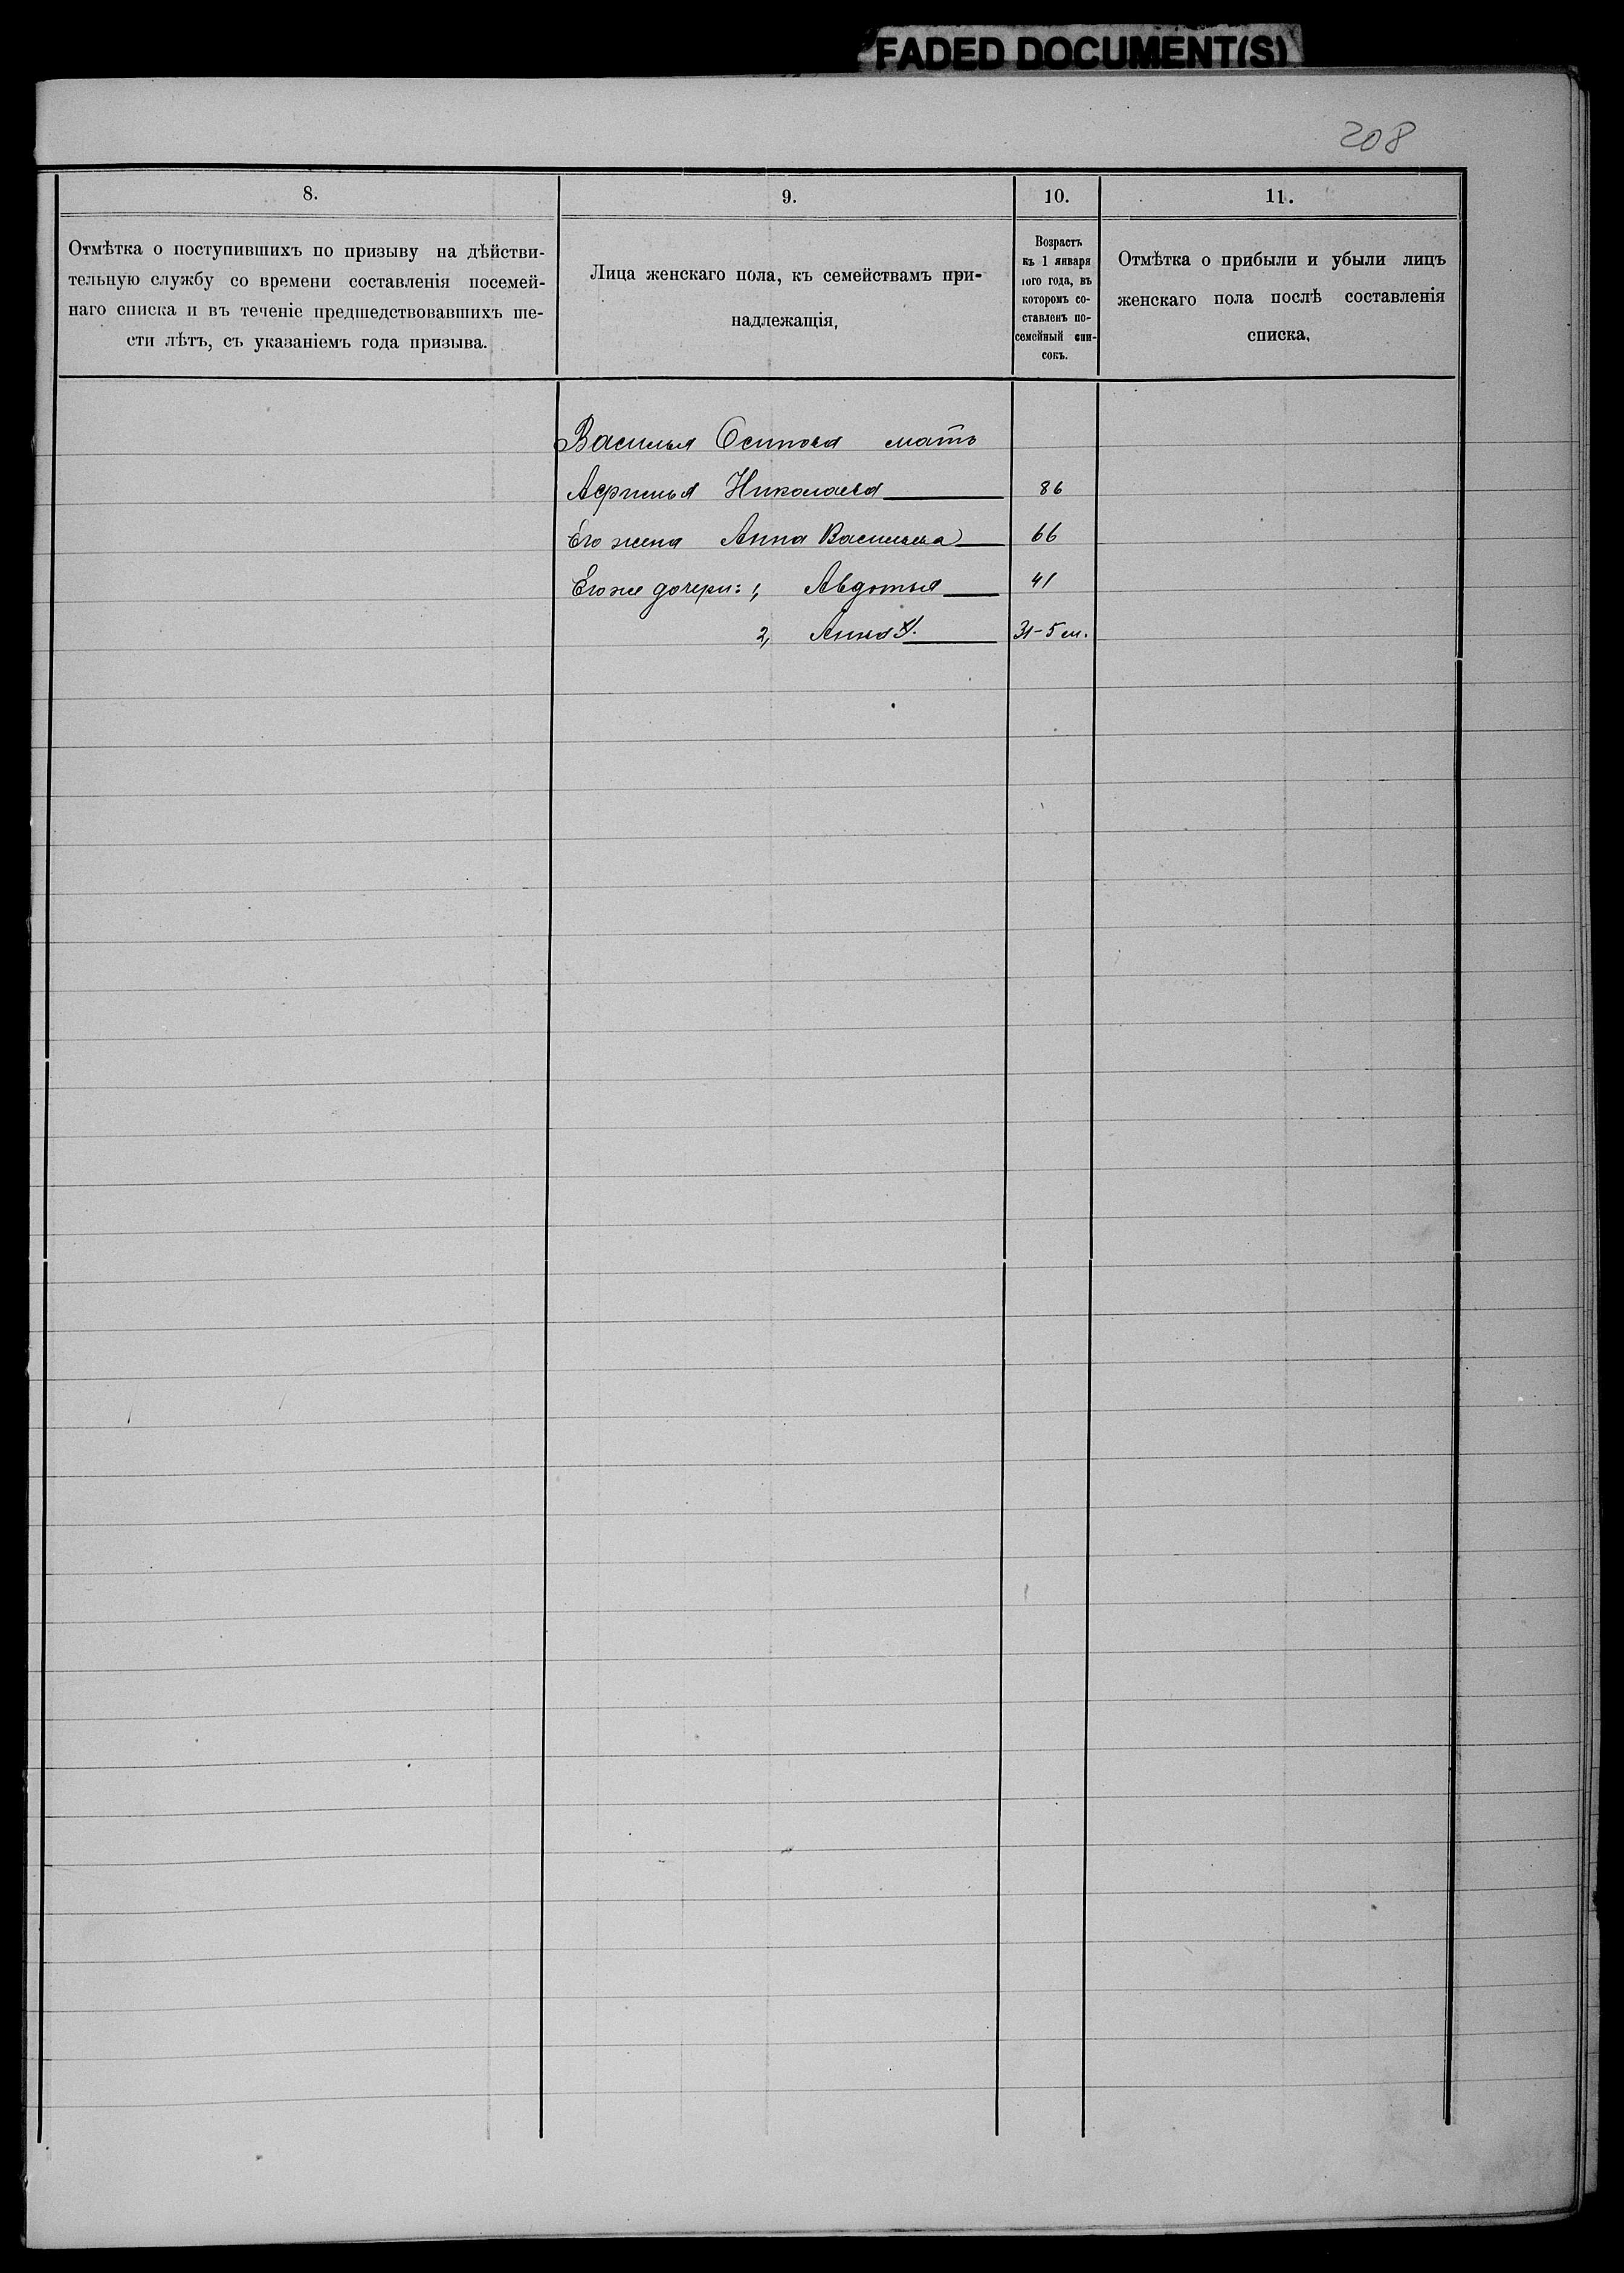 FADED DOCUMENT(S)
208
8.
Отмѣтка о поступившихъ по призыву на дѣйстви-
тельную службу со времени составленія посемей-
наго списка и въ теченіе предшедствовавшихъ ше-
сти лѣтъ, съ указаніемъ года призыва.
9.
Лица женскаго пола, къ семействамъ при-
надлежащія,
10.
Возрастъ
къ 1 января
того года, въ
которомъ со-
ставленъ по-
семейный спи-
сокъ.
11.
Отмѣтка о прибыли и убыли лицъ
женскаго пола послѣ составленія
списка,
Василья Осипова мать
Николаева 86
Его жена Анна Васильева 66
Его же дочери: 1, Авдотья 41
2, Анна 31-5 м.